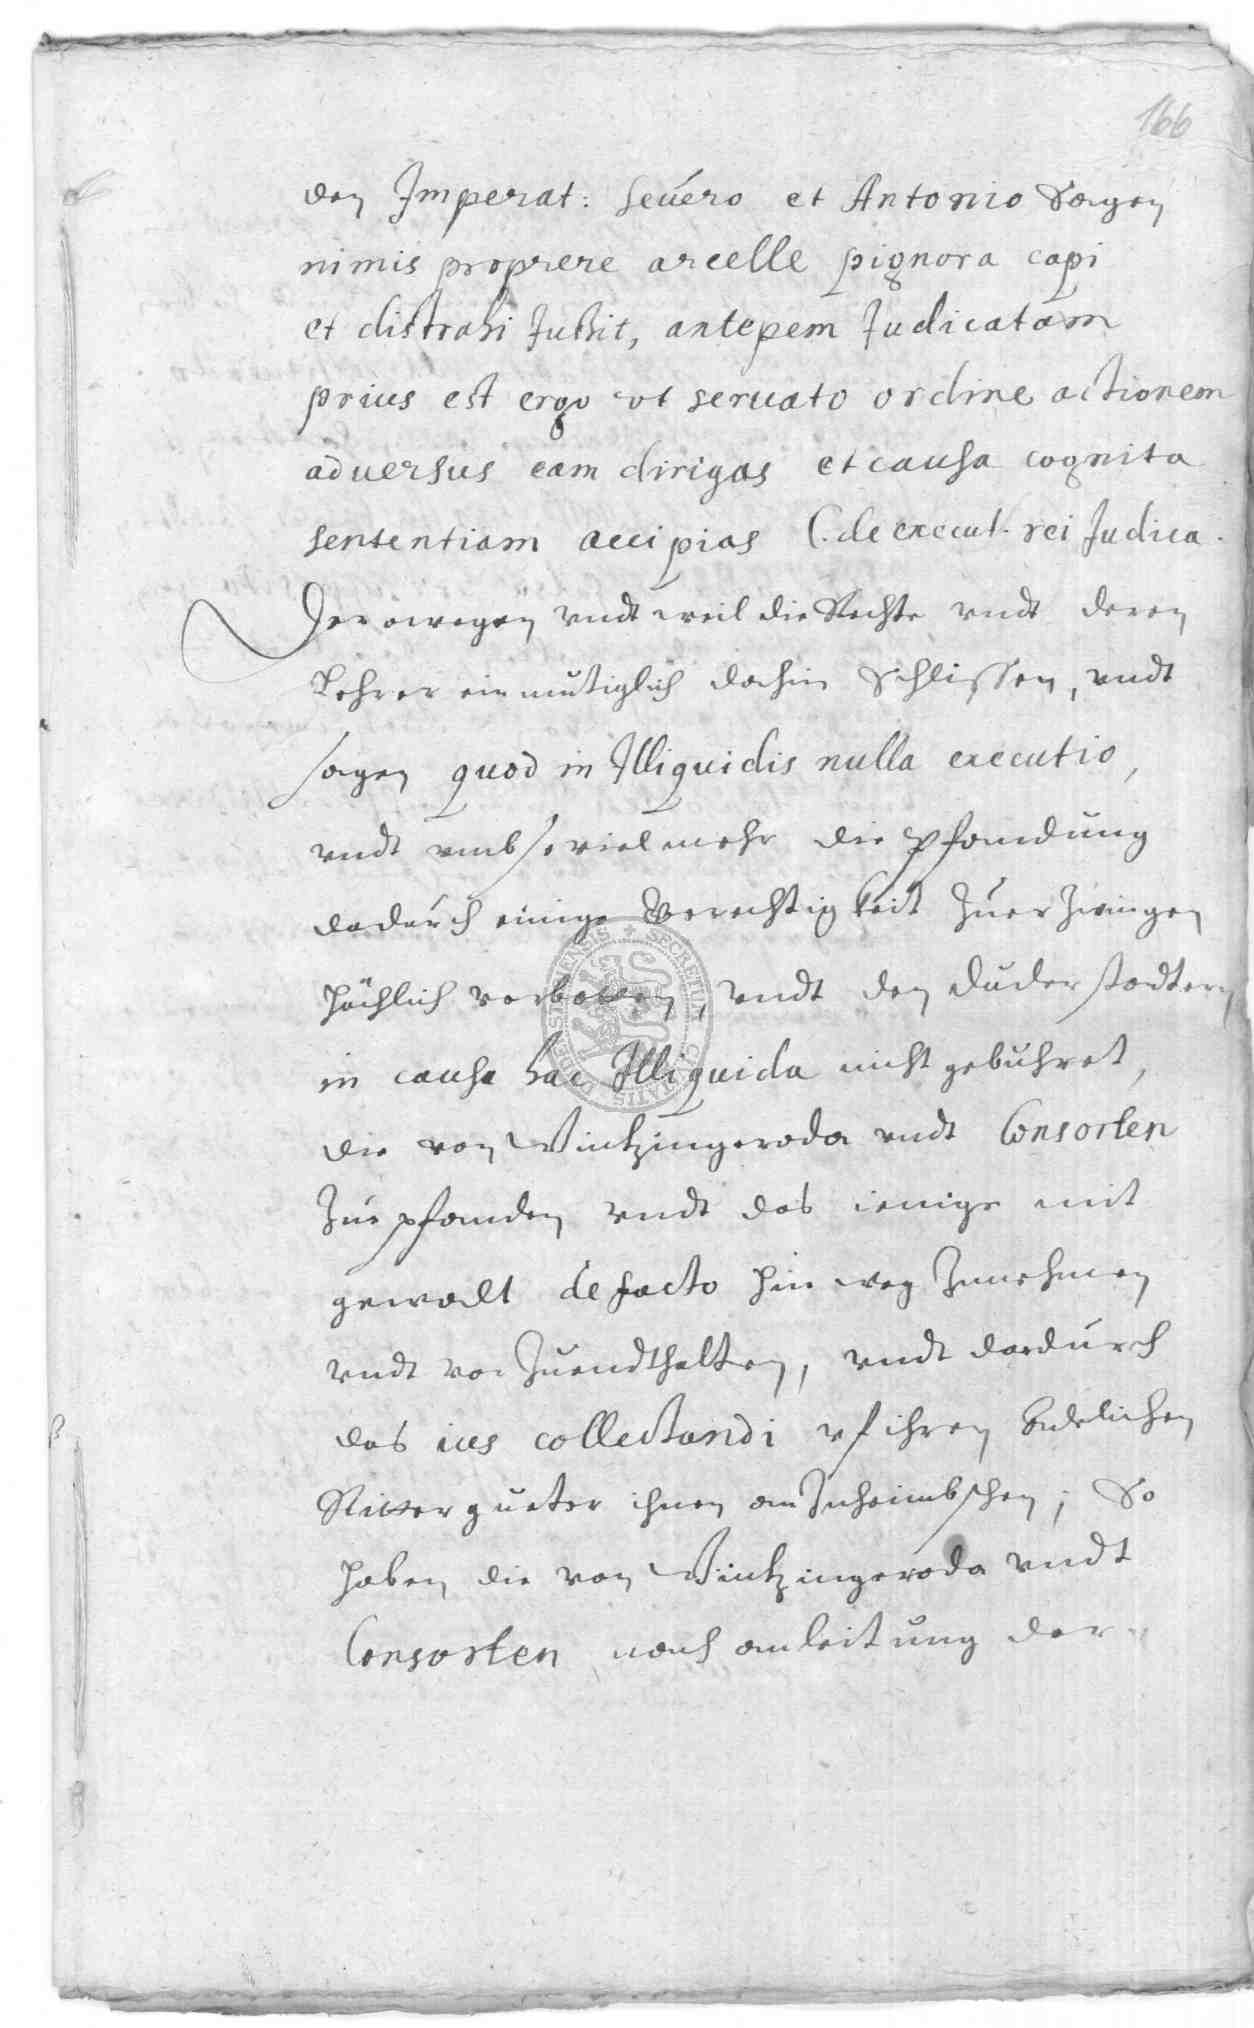 166
den Imperat: Severo et Antonio Sagen
nimis proprere arcelle pignora capi
et distrahi Jußit, antepem Judicatam
prius est ergo vt seruato ordine actionem
aduersus eam dirigas et causa cognita
sententiam accipias C. de execut. rei Judica.
Derowegen vndt weil die Rechte vndt deren
Lehrer einmutiglich dahin Schlissen, vndt
sagen quod in Illiquidis nulla executio,
vndt vmb so viel mehr die pfandung
dadurch einige Gerechtigkeit Zuerzwingen
höchlich verbotten, vndt den Duderstadtern
in causa hac Illiquida nicht gebuhret,
die von Wintzingeroda vndt Consorten
Zue pfanden vndt das ienige mit
gewalt de facto hin weg Zunehmen
vndt vor Zuendthalten, vndt dardurch
das ius collectandi vf ihren Adelichen
Rittergueter ihnen an Zuheimbschen; So
haben die von Wintzingeroda vndt
Consorten nach anleitung der
SECRETUM CIVITATIS DUDERSTADENSIS